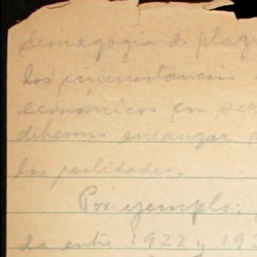 demagogia de plaz
las circunstancias
económicas em ser
debemos encauzar
las realidades.
Por ejemplo:
da entre 1922 y 192